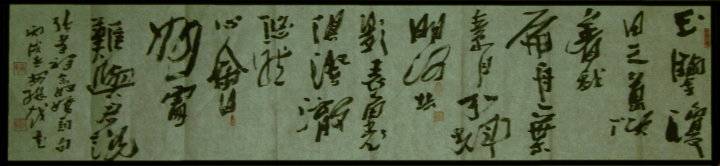 玉鑒瓊
田三萬頃
著我
扁舟一葉
素月分輝
明河共
影表裏
俱澄澈
悠然
心會
妙處
難與君說
張孝祥念奴嬌詞句
丙戌